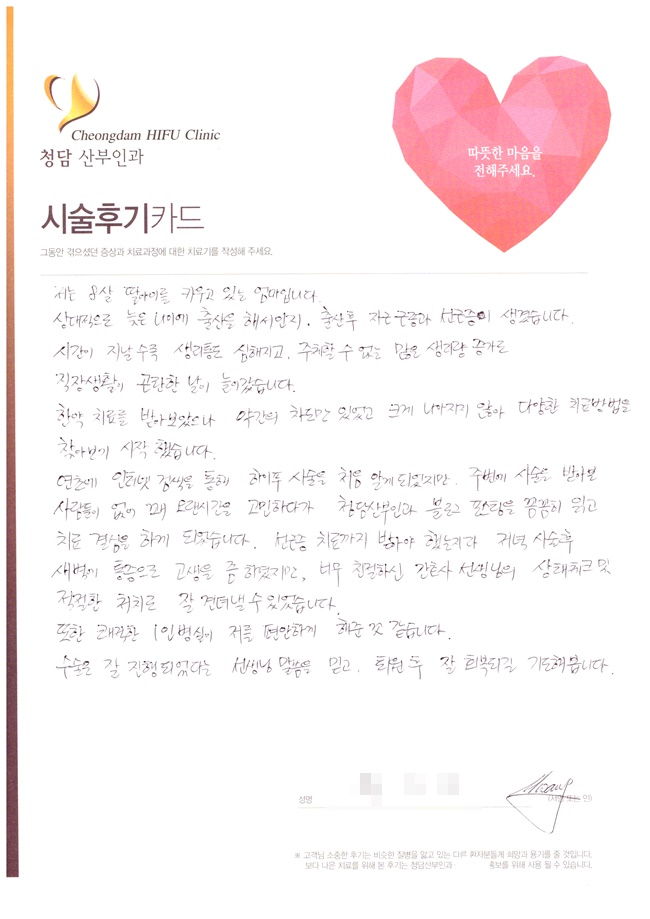 Cheongdam HIFU Clinic
청담 산부인과
따뜻한 마음을
전해주세요.
시술후기카드
그동안 겪으셨던 증상과 치료과정에 대한 치료기를 작성해 주세요.
저는 8살 딸아이를 키우고 있는 엄마입니다.
상대적으로 늦은 나이에 출산을 해서인지, 출산후 자궁근종과 선근증이 생겼습니다.
시간이 지날수록 생리통도 심해지고, 주체할 수 없는 많은 생리량 증가로
직장생활이 곤란한 날이 늘어갔습니다.
한약 치료를 받아보았으나 약간의 차도만 있었고 크게 나아지지 않아 다양한 치료방법을
찾아보기 시작했습니다.
연초에 인터넷 검색을 통해 하이푸 시술을 처음 알게 되었지만, 주변에 시술을 받아본
사람들이 없어 꽤 오랜시간을 고민하다가 청담산부인과 블로그 포스팅을 꼼꼼히 읽고
치료 결심을 하게 되었습니다. 선근증 치료까지 받아야 했는지라 저녁 시술후
새벽에 통증으로 고생을 좀 하였지만, 너무 친절하신 간호사 선생님의 상태체크 및
적절한 처치로 잘 견뎌낼 수 있었습니다.
또한 쾌적한 1인 병실이 저를 편안하게 해준 것 같습니다.
수술은 잘 진행되었다는 선생님 말씀을 믿고, 퇴원 후 잘 회복되길 기도해봅니다.
성명
(서명 또는 인)
※ 고객님 소중한 후기는 비슷한 질병을 앓고 있는 다른 환자분들께 희망과 용기를 줄 것입니다.
보다 나은 치료를 위해 본 후기는 청담산부인과· 홍보를 위해 사용 될 수 있습니다.